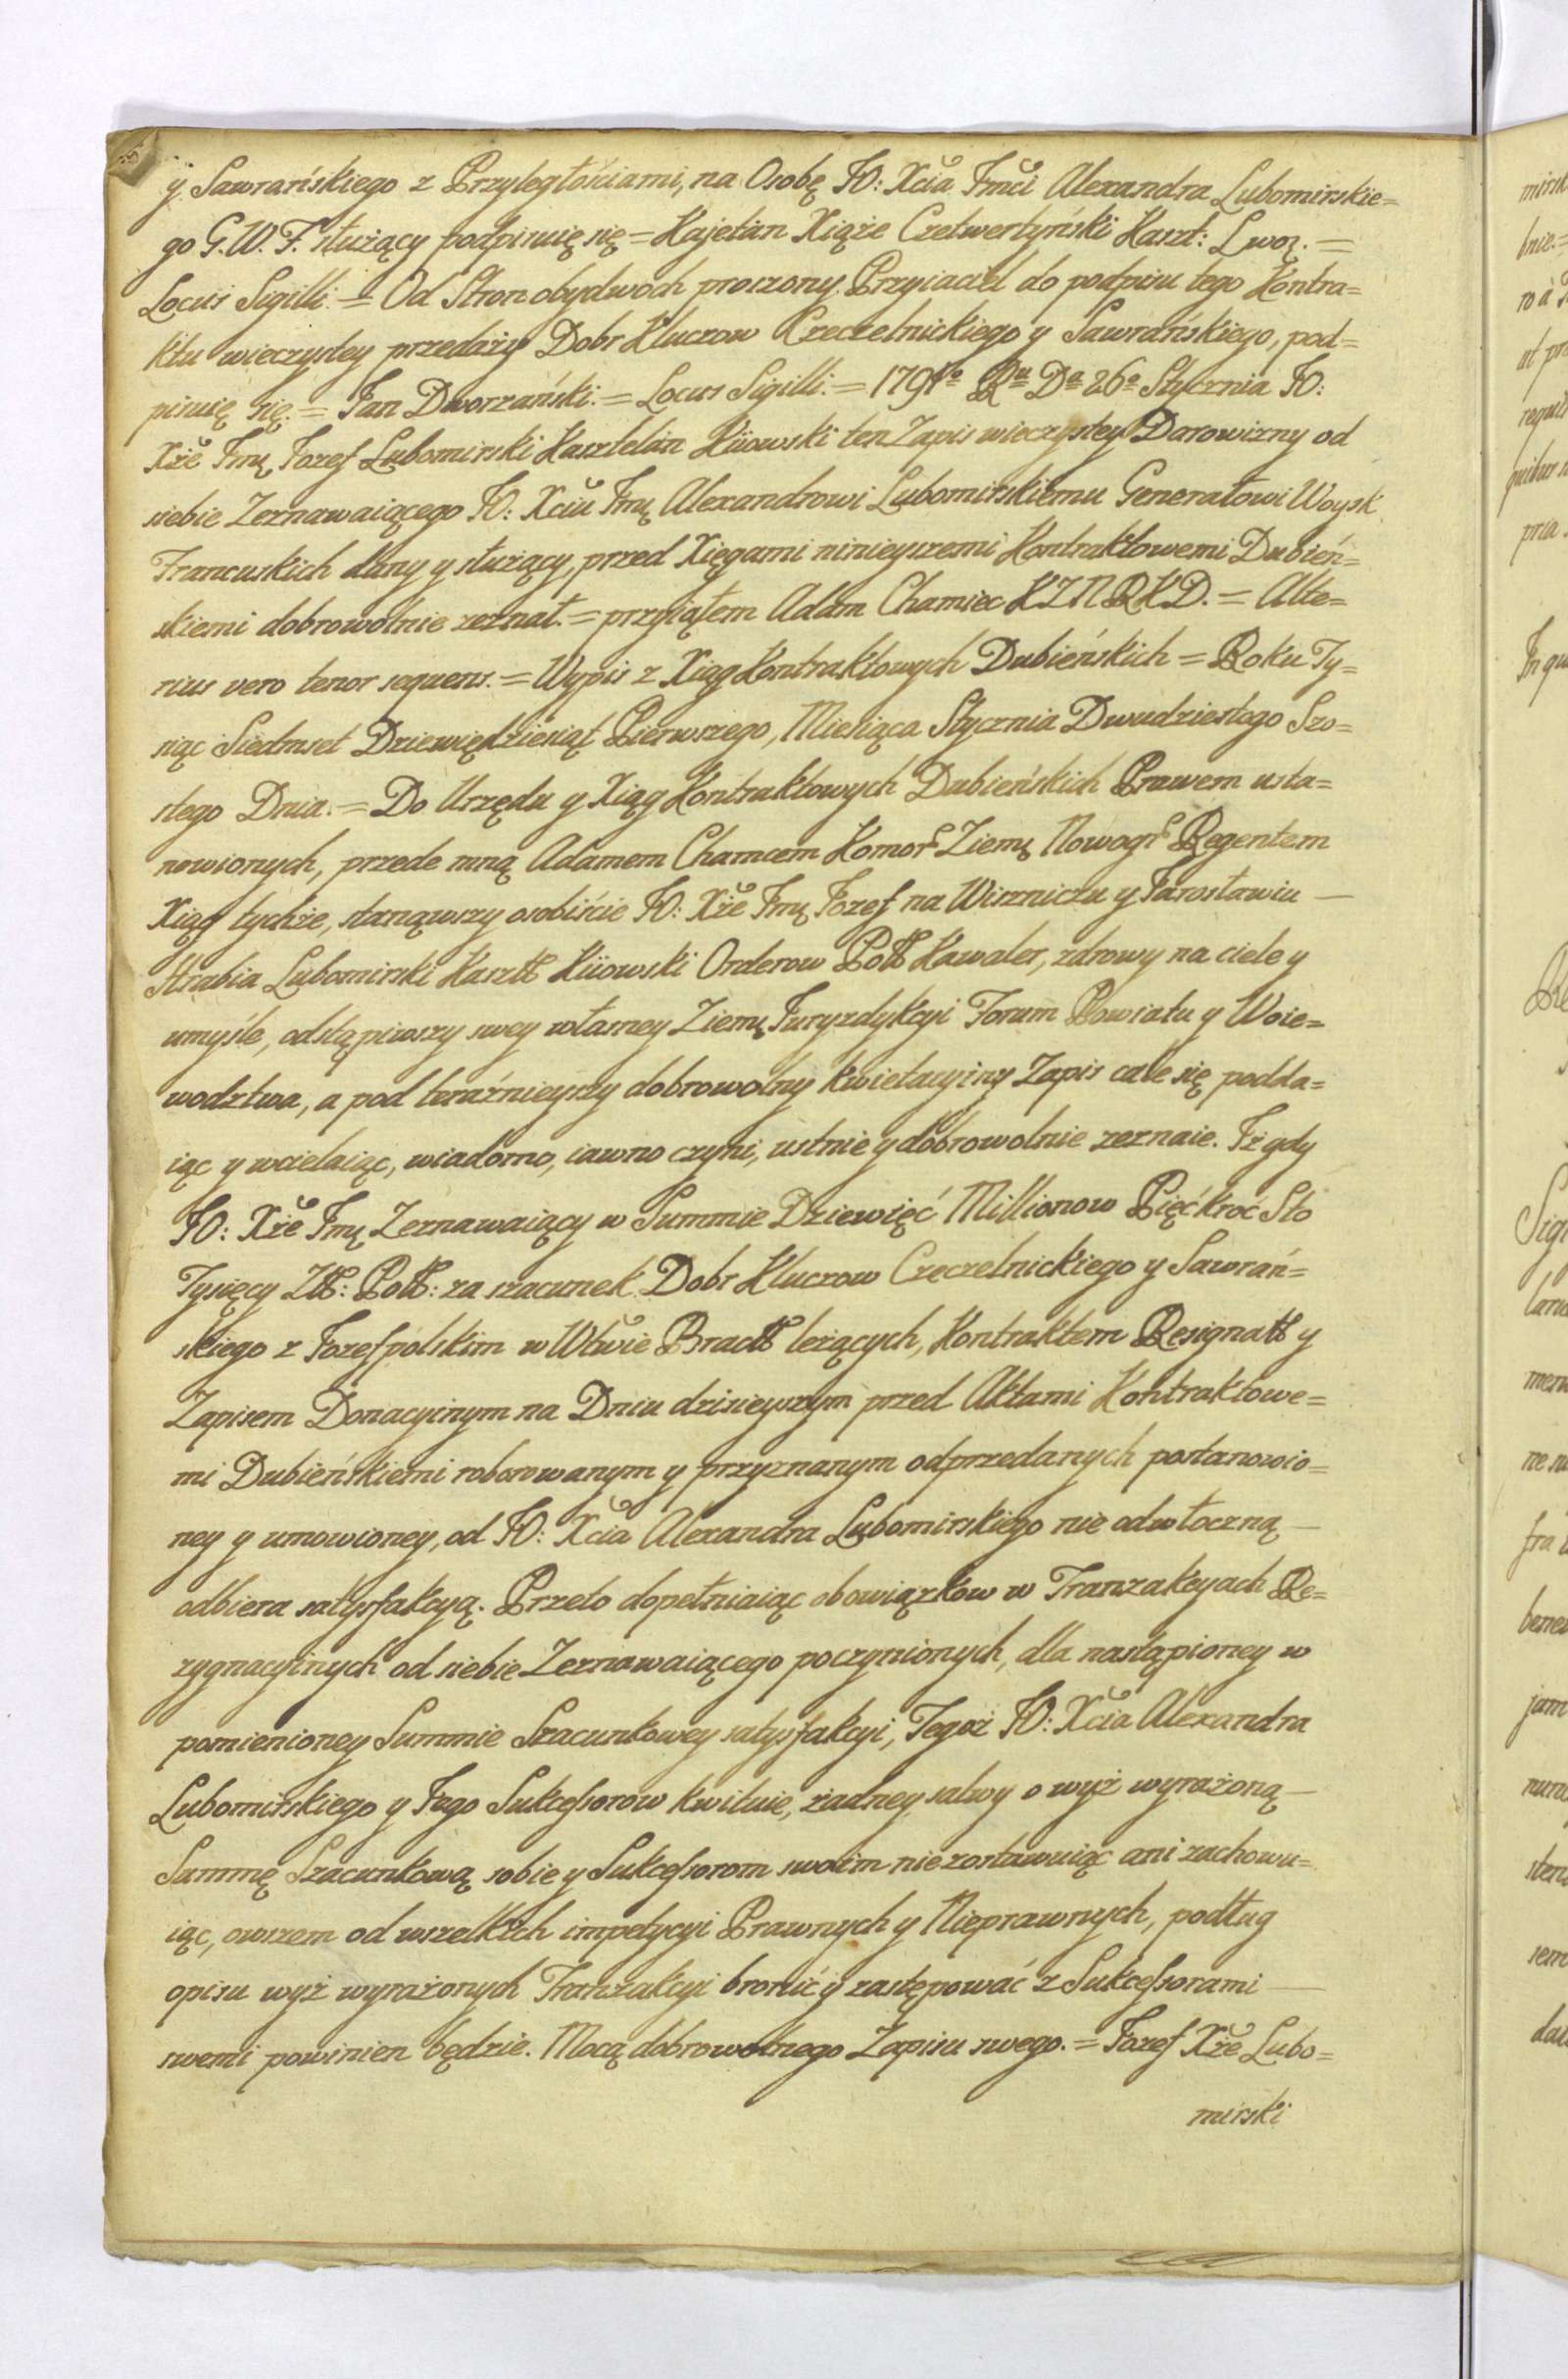 y Sawrańskiego z Przyległościami, na Osobę JO: Xcia Jmci Alexandra Lubomirskie=
go G. W. F. służący podpisuię się = Kajetan Xiąże Czetwertyński Kaszt: Lwoę. =
Locus Sigilli. = Od Stron obydwoch proszony Przyiaciel do podpisu tego Kontra=
ktu wieczystey przedaży Dobr Kluczow Czeczelnickiego y Sawrańskiego, pod=
pisuię się. = Jan Dworzański. = Locus Sigilli. = 1791o Ru Da 26a Stycznia JO:
Xże Jmę Jozef Lubomirski Kasztelan Kiiowski ten Zapis wieczystey Darowizny od
siebie Zeznawaiącego JO: Xciu Jmę Alexandrowi Lubomirskiemu Generałowi Woysk
Francuskich dany y służący, przed Xięgami ninieyszemi Kontraktowemi Dubień=
skiemi dobrowolnie zeznał. = przyiąłem Adam Chamiec KZNRKD. = Alte=
rius vero tenor sequens. = Wypis z Xiąg Kontraktowych Dubieńskich = Roku Ty=
siąc Siedmset Dziewiędziesiąt Pierwszego, Miesiąca Stycznia Dwudziestego Szo=
stego Dnia. = Do Urzędu y Xiąg Kontraktowych Dubieńskich Prawem usta=
nowionych, przede mną Adamem Chamcem Komor Ziemę Nowogr Regentem
Xiąg tychże, stanąwszy osobiście JO: Xże Jmę Jozef na Wiszniczu y Jarosławiu —
Hrabia Lubomirski Kasztt Kiiowski Orderow Poll Kawaler, zdrowy na ciele y
umyśle, odstąpiwszy swey własney Ziemę Juryzdykcyi Forum Powiatu y Woie=
wodztwa, a pod teraźnieyszy dobrowolny kwietacyiny Zapis cale się podda=
iąc y wcielaiąc, wiadomo, iawno czyni, ustnie y dobrowolnie zeznaie. Iż gdy
JO: Xże Jmę Zeznawaiący w Summie Dziewięć Millionow Pięćkroć Sto
Tysięcy Złł: Poll: za szacunek Dobr Kluczow Czeczelnickiego y Sawrań=
skiego z Jozefpolskim w Wtwie Bracll leżących, Kontraktem Resignall y
Zapisem Donacyinym na Dniu dzisieyszym przed Aktami Kontraktowe=
mi Dubieńskiemi roborowanym y przyznanym odprzedanych postanowio=
ney y umowioney, od JO: Xcia Alexandra Lubomirskiego nie odwłoczną —
odbiera satysfakcyą. Przeto dopełniaiąc obowiązkow w Tranzakcyach Re=
zygnacyinych od siebie Zeznawaiącego poczynionych, dla nastąpioney w
pomienioney Summie Szacunkowey satysfakcyi, Tegoż JO: Xcia Alexandra
Lubomirskiego y Jego Sukcessorow kwituie, żadney salwy o wyż wyrażoną —
Summę Szacunkową sobie y Sukcessorom swoim nie zostawuiąc ani zachowu=
iąc, owszem od wszelkich impetycyi Prawnych y Nieprawnych, podług
opisu wyż wyrażonych Tranzakcyi bronić y zastępować z Sukcessorami —
swemi powinien będzie. Mocą dobrowolnego Zapisu swego. = Jozef Xże Lubo=
mirski